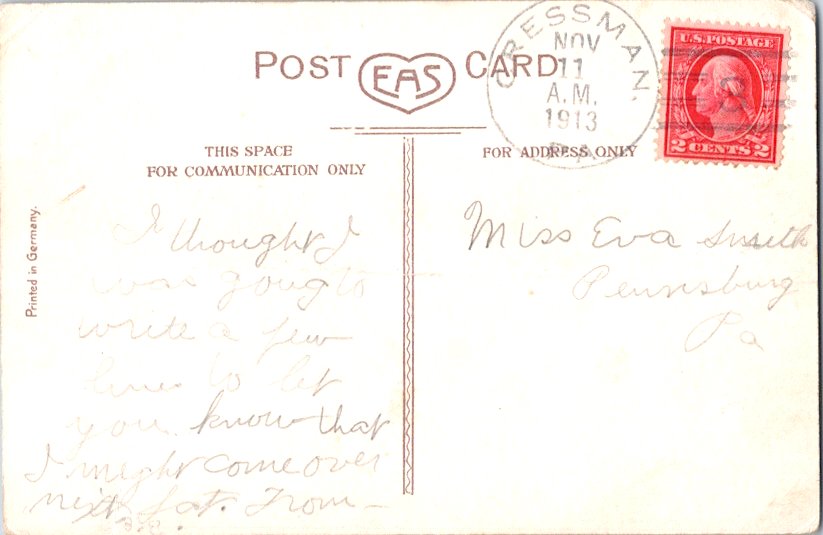 POST EAS CARD
CRESSMAN,
NOV
11
A.M.
1913
PA.
U.S. POSTAGE
2 CENTS 2
8
THIS SPACE
FOR COMMUNICATION ONLY
FOR ADDRESS ONLY
Printed in Germany.
I thought I
was going to
write a few
lines to let
you know that
I might come over
next Sat. From
Miss Eva Smith
Pennsburg
Pa